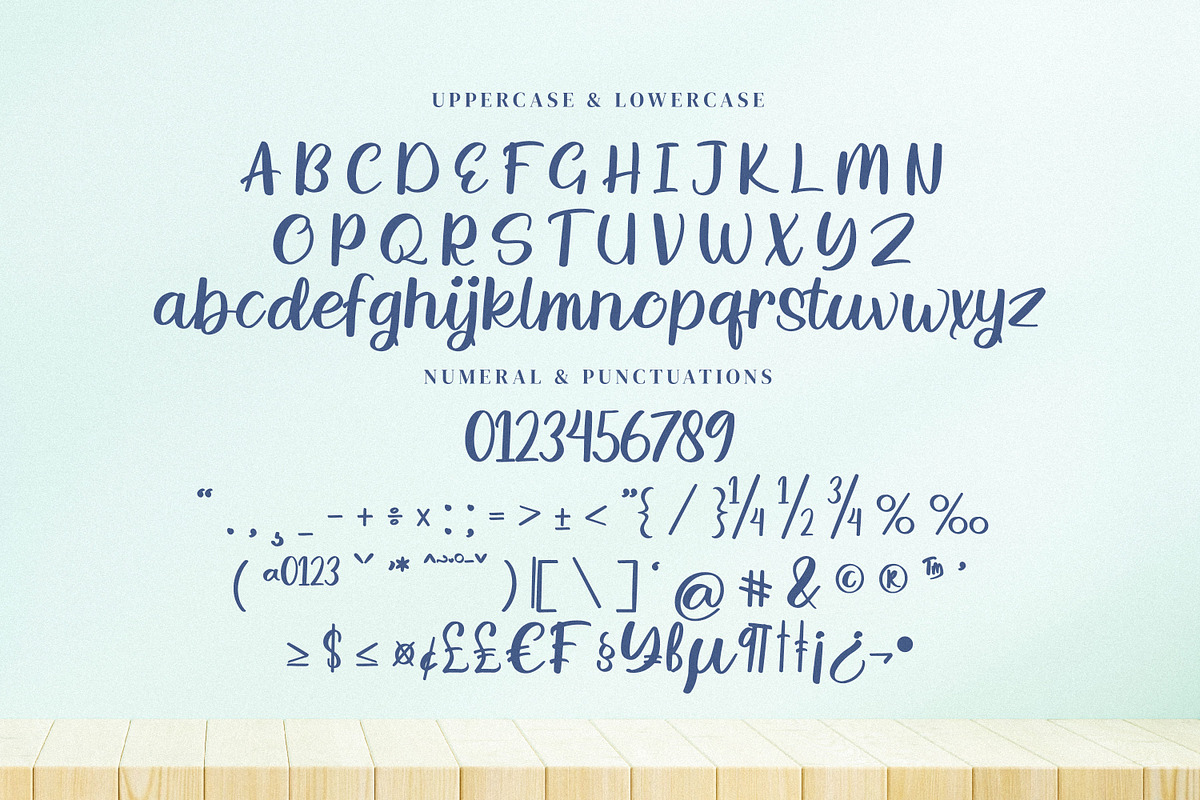 UPPERCASE & LOWERCASE
A B C D E F G H I J K L M N
O P Q R S T U V W X Y Z
abcdefghijklmnopqrstuvwxyz
NUMERAL & PUNCTUATIONS
0123456789
“ . , ¸ _ − + ÷ × : ; = > ± < ” { / } ¼ ½ ¾ % ‰
( ª⁰¹²³ ˇ ’ * ^ ~ · ° - ˘ ) | [ \ ] ‘ @ # & © ® ™ ’
≥ $ ≤ ¤ ¢ £ ₤ € F § ¥ ß µ ¶ † ‡ ¡ ¿ ¬ •